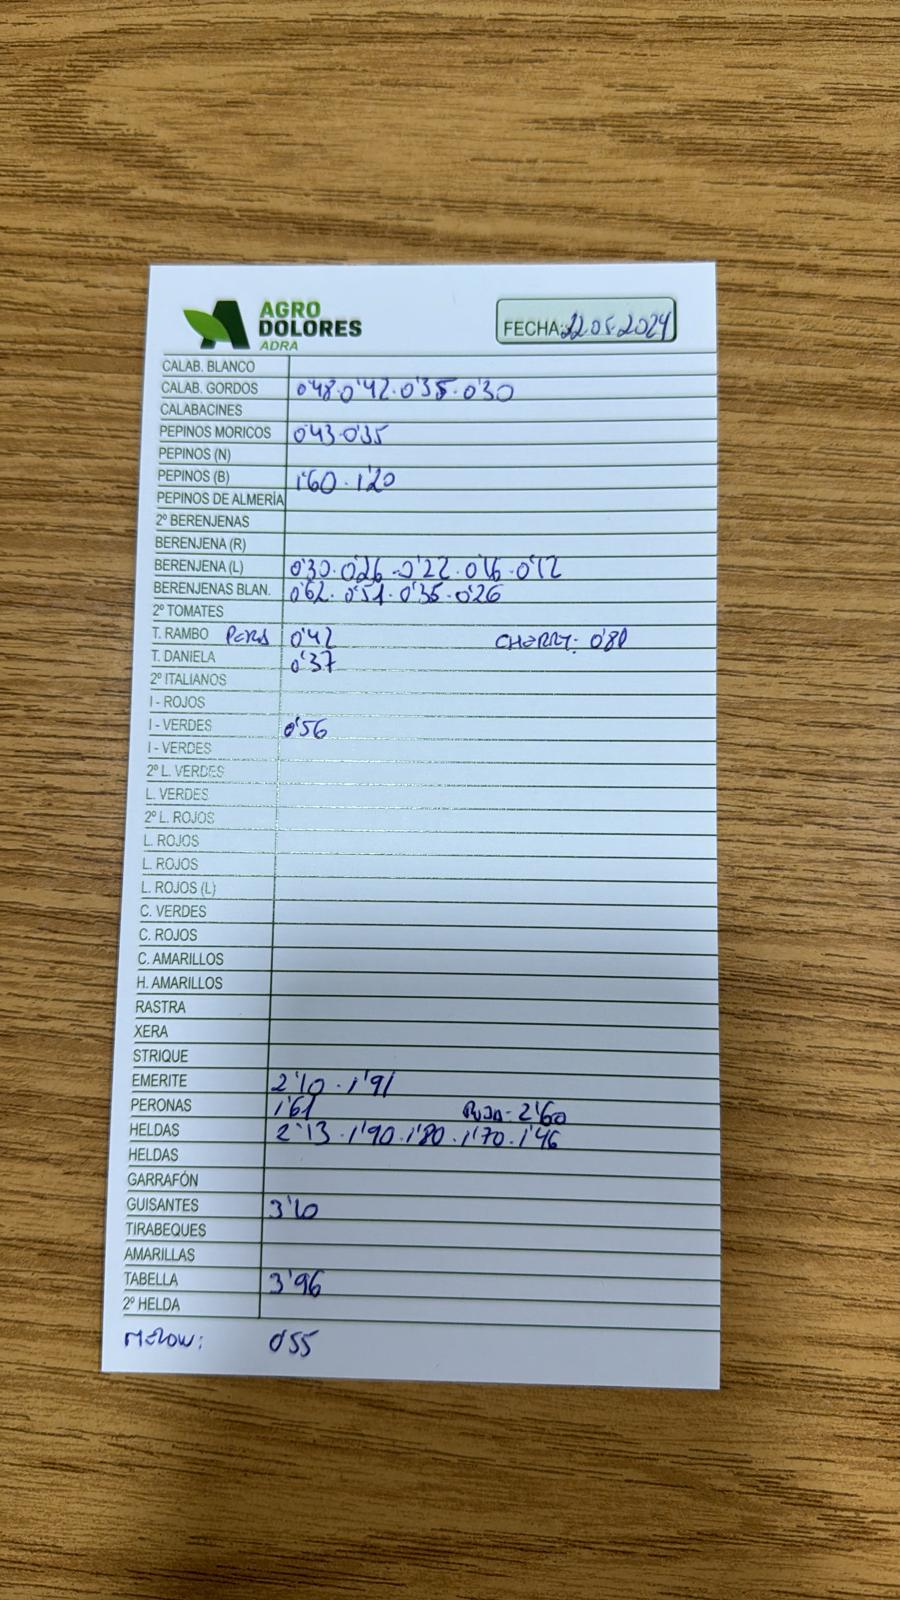 AGRO
DOLORES
ADRA
FECHA: 22.05.2024
CALAB. BLANCO
CALAB. GORDOS 0'48.0'42.0'35.0'30
CALABACINES
PEPINOS MORICOS 0'43.0'35
PEPINOS (N)
PEPINOS (B) 1'60.1'20
PEPINOS DE ALMERÍA
2º BERENJENAS
BERENJENA (R)
BERENJENA (L) 0'30.0'26-0'22.0'16.0'12
BERENJENAS BLAN. 0'62.0'51.0'35.0'26
2º TOMATES
T. RAMBO PERA 0'42 CHERRY: 0'80
T. DANIELA 0'37
2º ITALIANOS
I - ROJOS
I - VERDES 0'56
I - VERDES
2º L. VERDES
L. VERDES
2º L. ROJOS
L. ROJOS
L. ROJOS
L. ROJOS (L)
C. VERDES
C. ROJOS
C. AMARILLOS
H. AMARILLOS
RASTRA
XERA
STRIQUE
EMERITE 2'10.1'91
PERONAS 1'61 ROJA- 2'60
HELDAS 2'13.1'90.1'80.1'70.1'46
HELDAS
GARRAFÓN
GUISANTES 3'10
TIRABEQUES
AMARILLAS
TABELLA 3'96
2º HELDA
MELON: 0'55